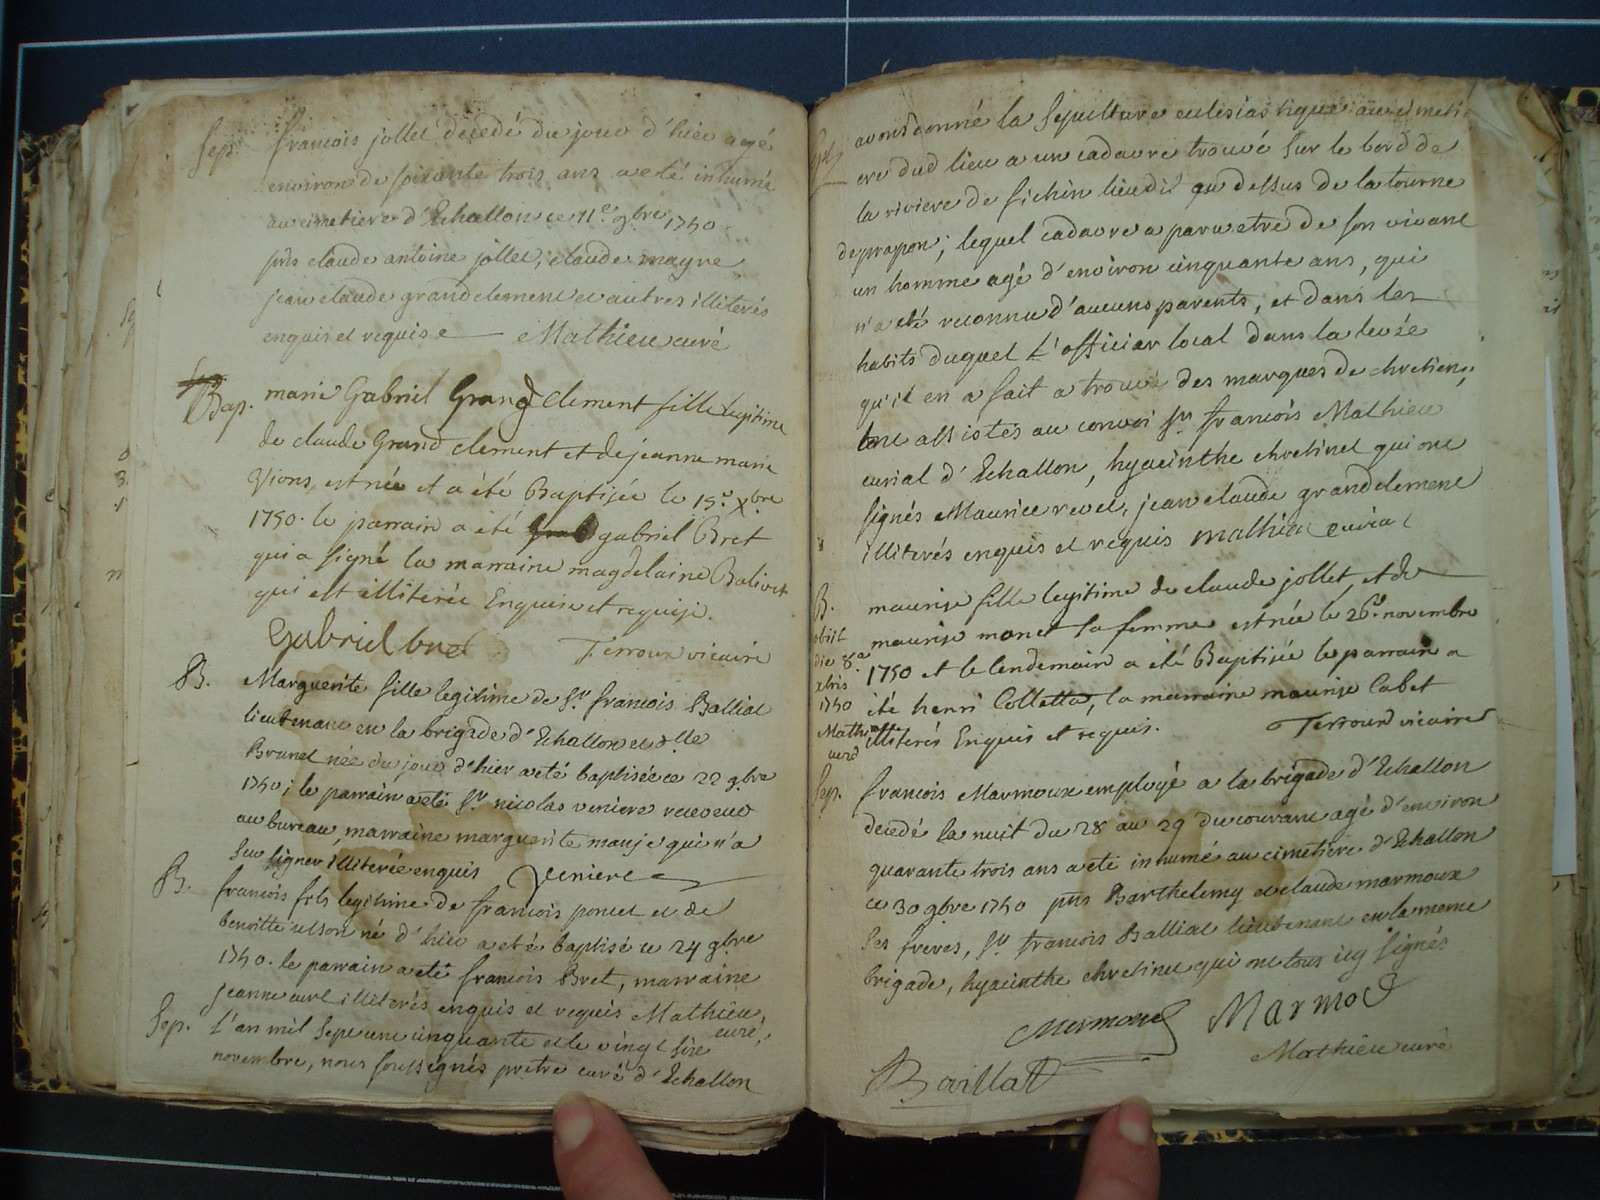 Sep. francois jollet decedé du jour d'hier agé
environ de soixante trois ans a eté inhumé
au cimetiere d'Echallon ce 11e 9bre 1750
pñs claude antoine jollet, claude mayre
jean claude grandclement et autres illiterés
enquis et requis e Mathieu curé
Bap. marie Gabriel Grand clement fille legitime
de claude Grand clement et de jeanne marie
Vions, est née et a été Baptisée le 15e xbre
1750. le parrain a été gabriel Bret
qui a signé la marraine magdelaine Balivet
qui est illiterée Enquise et requise.
Gabriel bret Terroux vicaire
B. Marguerite fille legitime de Sr francois Balliat
lieutenant en la brigade d'Echallon et dlle
Brunet née du jour d'hier a eté baptisée ce 22 9bre
1750; le parrain a eté Sr nicolas veniere receveur
au bureau, marraine marguerite manjé qui n'a
Seu signer illiterée enquis Veniere
B. francois fils legitime de francois poncet et de
benoitte né d'hier a eté baptisé ce 24 9bre
1750. le parrain a eté francois Bret, marraine
jeanne illiterés enquis et requis Mathieu
curé,
Sep. L'an mil sept cent cinquante et le vingt sixe
novembre, nous soussignés pretre curé d'Echallon
avons donné la sepulture eclesiastique au cimeti
ere dud lieu a un cadavre trouvé sur le bord de
la riviere de lieu dit au dessus de la tourne
; lequel cadavre a paru etre de son vivant
un homme agé d'environ cinquante ans, qui
n'a eté reconnu d'aucuns parents, et dans les
habits duquel L'officier local dans la levée
qu'il en a fait a trouvé des marques de chretien;
ont assistés au convoi Sr francois Mathieu
curial d'Echallon, hyacinthe chretinet qui ont
signés Maurice revel, jean claude grandclement
illiterés enquis et requis Mathieu curial
B. maurise fille legitime de claude jollet, et de
obiit
maurise monet sa femme est née le 26e novembre
die 8a
1750 et le lendemain a été Baptisée le parrain a
xbris
1750
été henri Colletta, la marraine maurise Cabet
Mathieu
curé
illiterés Enquis et requis. Terroux vicaire
Sep. francois Marmoux employé a la brigade d'Echallon
decedé la nuit du 28 au 29 du courant agé d'environ
quarante trois ans a eté inhumé au cimetiere d'Echallon
ce 30 9bre 1750 pñs Barthelemy et claude marmoux
ses freres, Sr francois Balliat lieutenant en la meme
brigade, hyacinthe chretinet qui ont tous icy signés
Marmod
Mathieu curé
Baillat